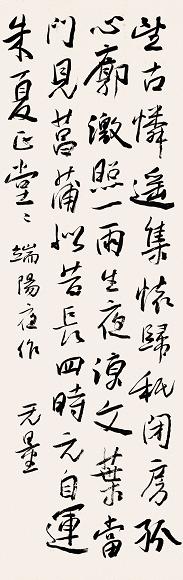 望古憐遥集懷歸秖閉房孤
心廓激照一雨生夜涼文葉當
門見菖蒲非昔長四時元自運
朱夏正堂〻端陽夜作 无量